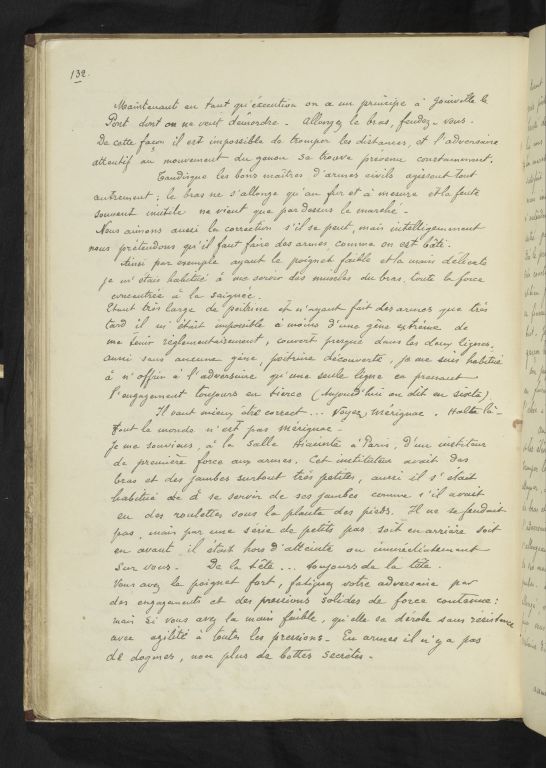 132.
Maintenant en tant qu'exécution on a un principe à Joinville le
Pont dont on ne veut démordre. Allongez le bras, fendez-vous.
De cette façon il est impossible de tromper les distances, et l'adversaire
attentif au mouvement du genou se trouve prévenu constamment.
Tandisque les bons maîtres d'armes civils agissent tout
autrement; le bras ne s'allonge qu'au fur et à mesure et la fente
souvent inutile ne vient que par dessus le marché.
Nous aimons aussi la correction s'il se peut, mais intelligemment
nous prétendons qu'il faut faire des armes, comme on est bâti.
Ainsi par exemple ayant le poignet faible et la main délicate
je m'étais habitué à me servir des muscles du bras, toute la force
concentrée à la saignée.
Etant très large de poitrine et n'ayant fait des armes que très
tard il m'était impossible à moins d'une gêne extrême de
me tenir réglementairement, couvert presque dans les deux lignes,
aussi sans aucune gêne, poitrine découverte, je me suis habitué
à n'offrir à l'adversaire qu'une seule ligne en prenant
l'engagement toujours en tierce (Aujourd'hui on dit en sixte)
Il vaut mieux être correct... Voyez Mérignac. Halte là-
Tout le monde n'est pas Mérignac.
Je me souviens, à la Salle à Paris, d'un instituteur
de première force aux armes. Cet instituteur avait des
bras et des jambes surtout très petites, aussi il s'était
habitué à se servir de ses jambes comme s'il avait
eu des roulettes sous la plante des pieds. Il ne se fendait
pas, mais par une série de petits pas soit en arrière soit
en avant, il était hors d'atteinte ou immédiatement
sur vous. De la tête... toujours de la tête.
Vous avez le poignet fort, fatiguez votre adversaire par
des engagements et des pressions solides de force contenue:
mais si vous avez la main faible, qu'elle se dérobe sans résistance
avec agilité à toutes les pressions. En armes il n'y a pas
de dogmes, non plus de bottes secrètes.